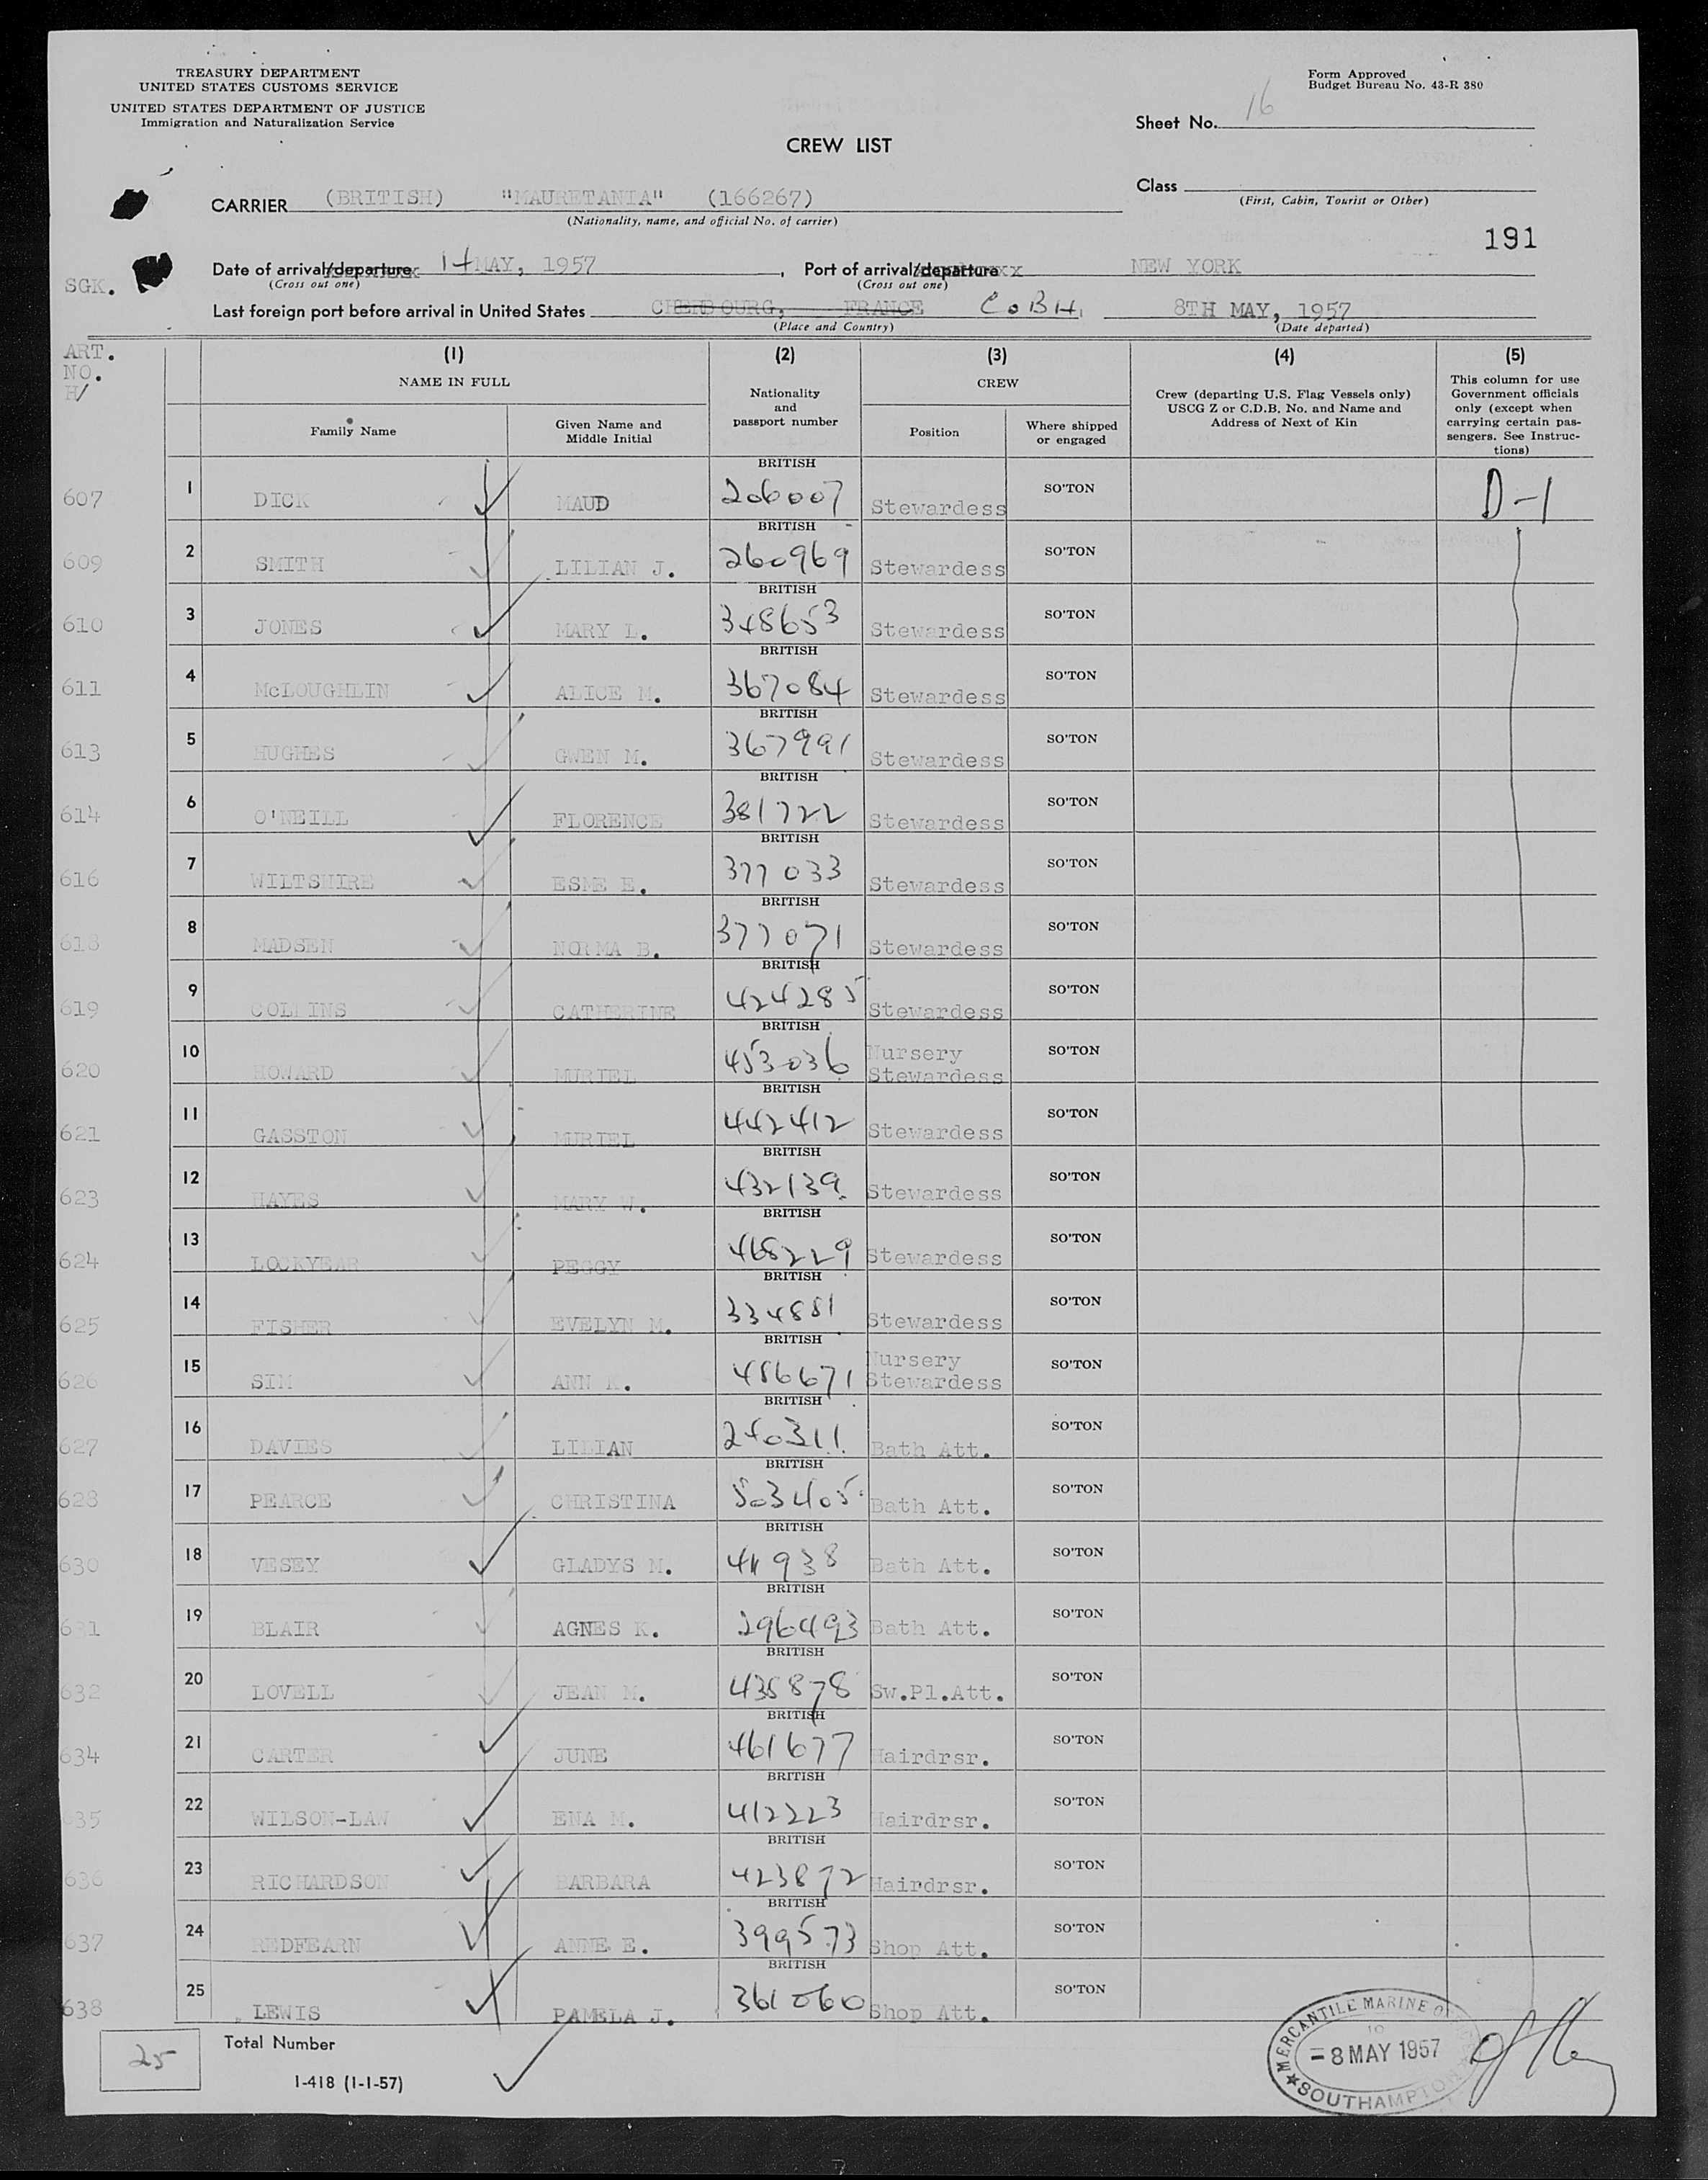 TREASURY DEPARTMENT
UNITED STATES CUSTOMS SERVICE
UNITED STATES DEPARTMENT OF JUSTICE
Immigration and Naturalization Service
Form Approved
Budget Bureau No. 43-R 380
Sheet No. 16
CREW LIST
Class
(First, Cabin, Tourist or Other)
CARRIER (BRITISH) "MAURETANIA" (166267)
(Nationality, name, and official No. of carrier)
191
Date of arrival/departure 14 MAY, 1957, Port of arrival/departure NEW YORK
(Cross out one) (Cross out one)
SGK.
Last foreign port before arrival in United States CHERBOURG, FRANCE COBH, 8TH MAY, 1957
(Place and Country) (Date departed)
ART. NO. H/
(1) (2) (3) (4) (5)
NAME IN FULL
Family Name
Given Name and Middle Initial
Nationality and passport number
CREW
Position
Where shipped or engaged
Crew (departing U.S. Flag Vessels only) USCG Z or C.D.B. No. and Name and Address of Next of Kin
This column for use Government officials only (except when carrying certain passengers. See Instructions)
607 1 DICK MAUD BRITISH 206007 Stewardess SO'TON D-1
609 2 SMITH LILIAN J. BRITISH 260969 Stewardess SO'TON
610 3 JONES MARY L. BRITISH 348653 Stewardess SO'TON
611 4 McLOUGHLIN ALICE M. BRITISH 367084 Stewardess SO'TON
613 5 HUGHES GWEN M. BRITISH 367991 Stewardess SO'TON
614 6 O'NEILL FLORENCE BRITISH 381722 Stewardess SO'TON
616 7 WILTSHIRE ESME E. BRITISH 377033 Stewardess SO'TON
618 8 MADSEN NORMA B. BRITISH 377071 Stewardess SO'TON
619 9 COLLINS CATHERINE BRITISH 424285 Stewardess SO'TON
620 10 HOWARD MURIEL BRITISH 453036 Nursery Stewardess SO'TON
621 11 GASSTON MURIEL BRITISH 442412 Stewardess SO'TON
623 12 HAYES MARY W. BRITISH 432139 Stewardess SO'TON
624 13 LOCKYEAR PEGGY BRITISH 468229 Stewardess SO'TON
625 14 FISHER EVELYN M. BRITISH 334881 Stewardess SO'TON
626 15 SIM ANN BRITISH 486671 Nursery Stewardess SO'TON
627 16 DAVIES LILIAN BRITISH 240311 Bath Att. SO'TON
628 17 PEARCE CHRISTINA BRITISH 503405 Bath Att. SO'TON
630 18 VESEY GLADYS M. BRITISH Bath Att. SO'TON
631 19 BLAIR AGNES K. BRITISH 296493 Bath Att. SO'TON
632 20 LOVELL JEAN M. BRITISH 435878 Sw.Pl.Att. SO'TON
634 21 CARTER JUNE BRITISH 461677 Hairdrsr. SO'TON
635 22 WILSON-LAW ENA M. BRITISH 412223 Hairdrsr. SO'TON
636 23 RICHARDSON BARBARA BRITISH 423872 Hairdrsr. SO'TON
637 24 REDFEARN ANNE E. BRITISH 399573 Shop Att. SO'TON
638 25 LEWIS PAMELA J. BRITISH 361060 Shop Att. SO'TON
25 Total Number
I-418 (1-1-57)
MERCANTILE MARINE
-8 MAY 1957
SOUTHAMPTON